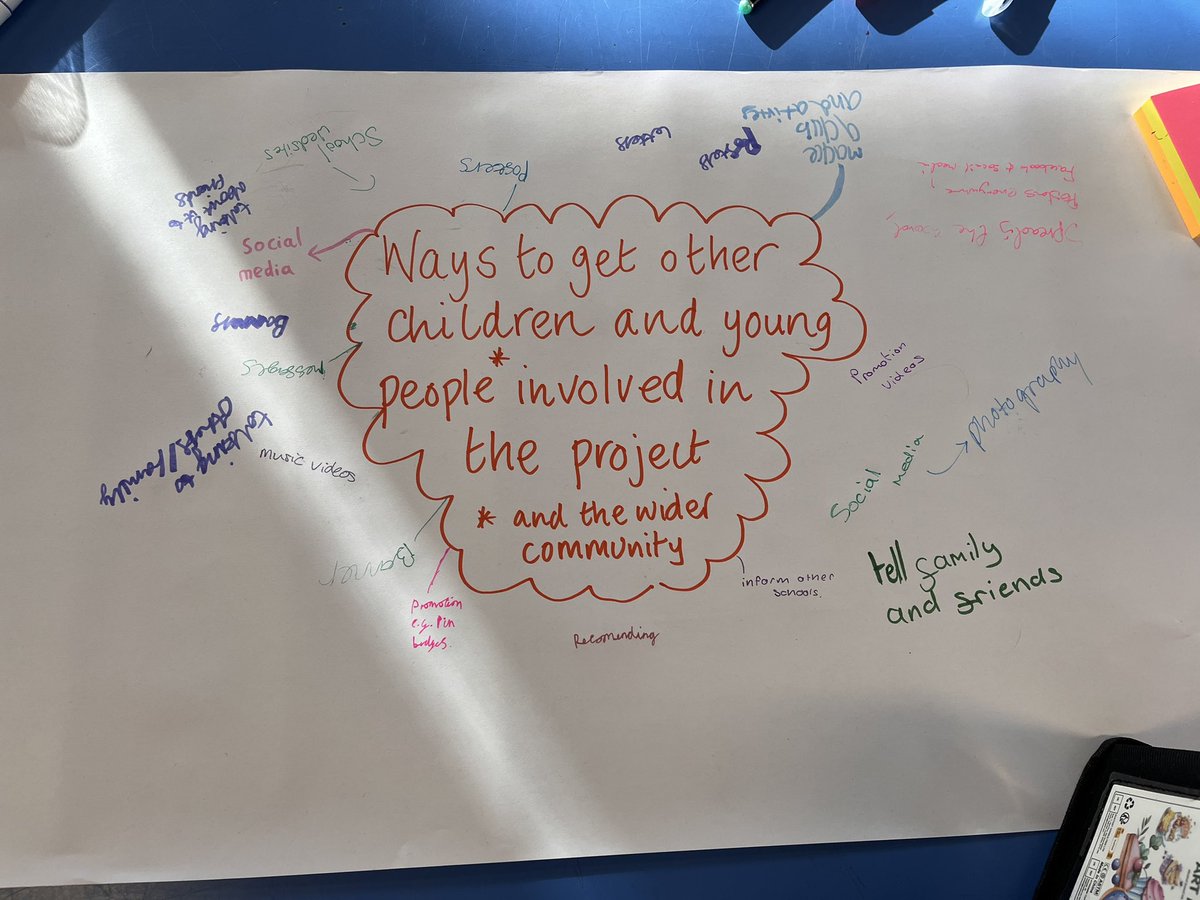 Ways to get other
children and young
people* involved in
the project
* and the wider
community
School
websites
Posters
letters
Posters
make
a club
and
talking
about it to
friends
Social
media
Banners
messages
talking to
others/family
music videos
Banner
promotion
e.g. Pin
badges.
Recomending
inform other
schools.
tell family
and friends
Social
media
photography
Promotion
videos
the word
Facebook + social media